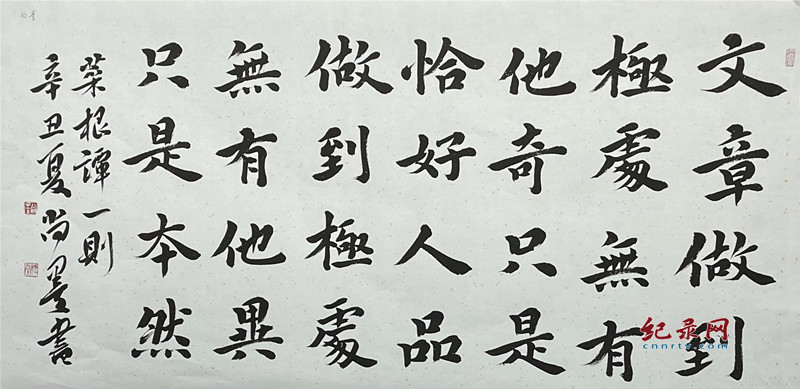 文章做到
極處無有
他奇只是
恰好人品
做到極處
無有他異
只是本然
菜根譚一則
辛丑夏尚墨書
纪录网
cnnrtv.com